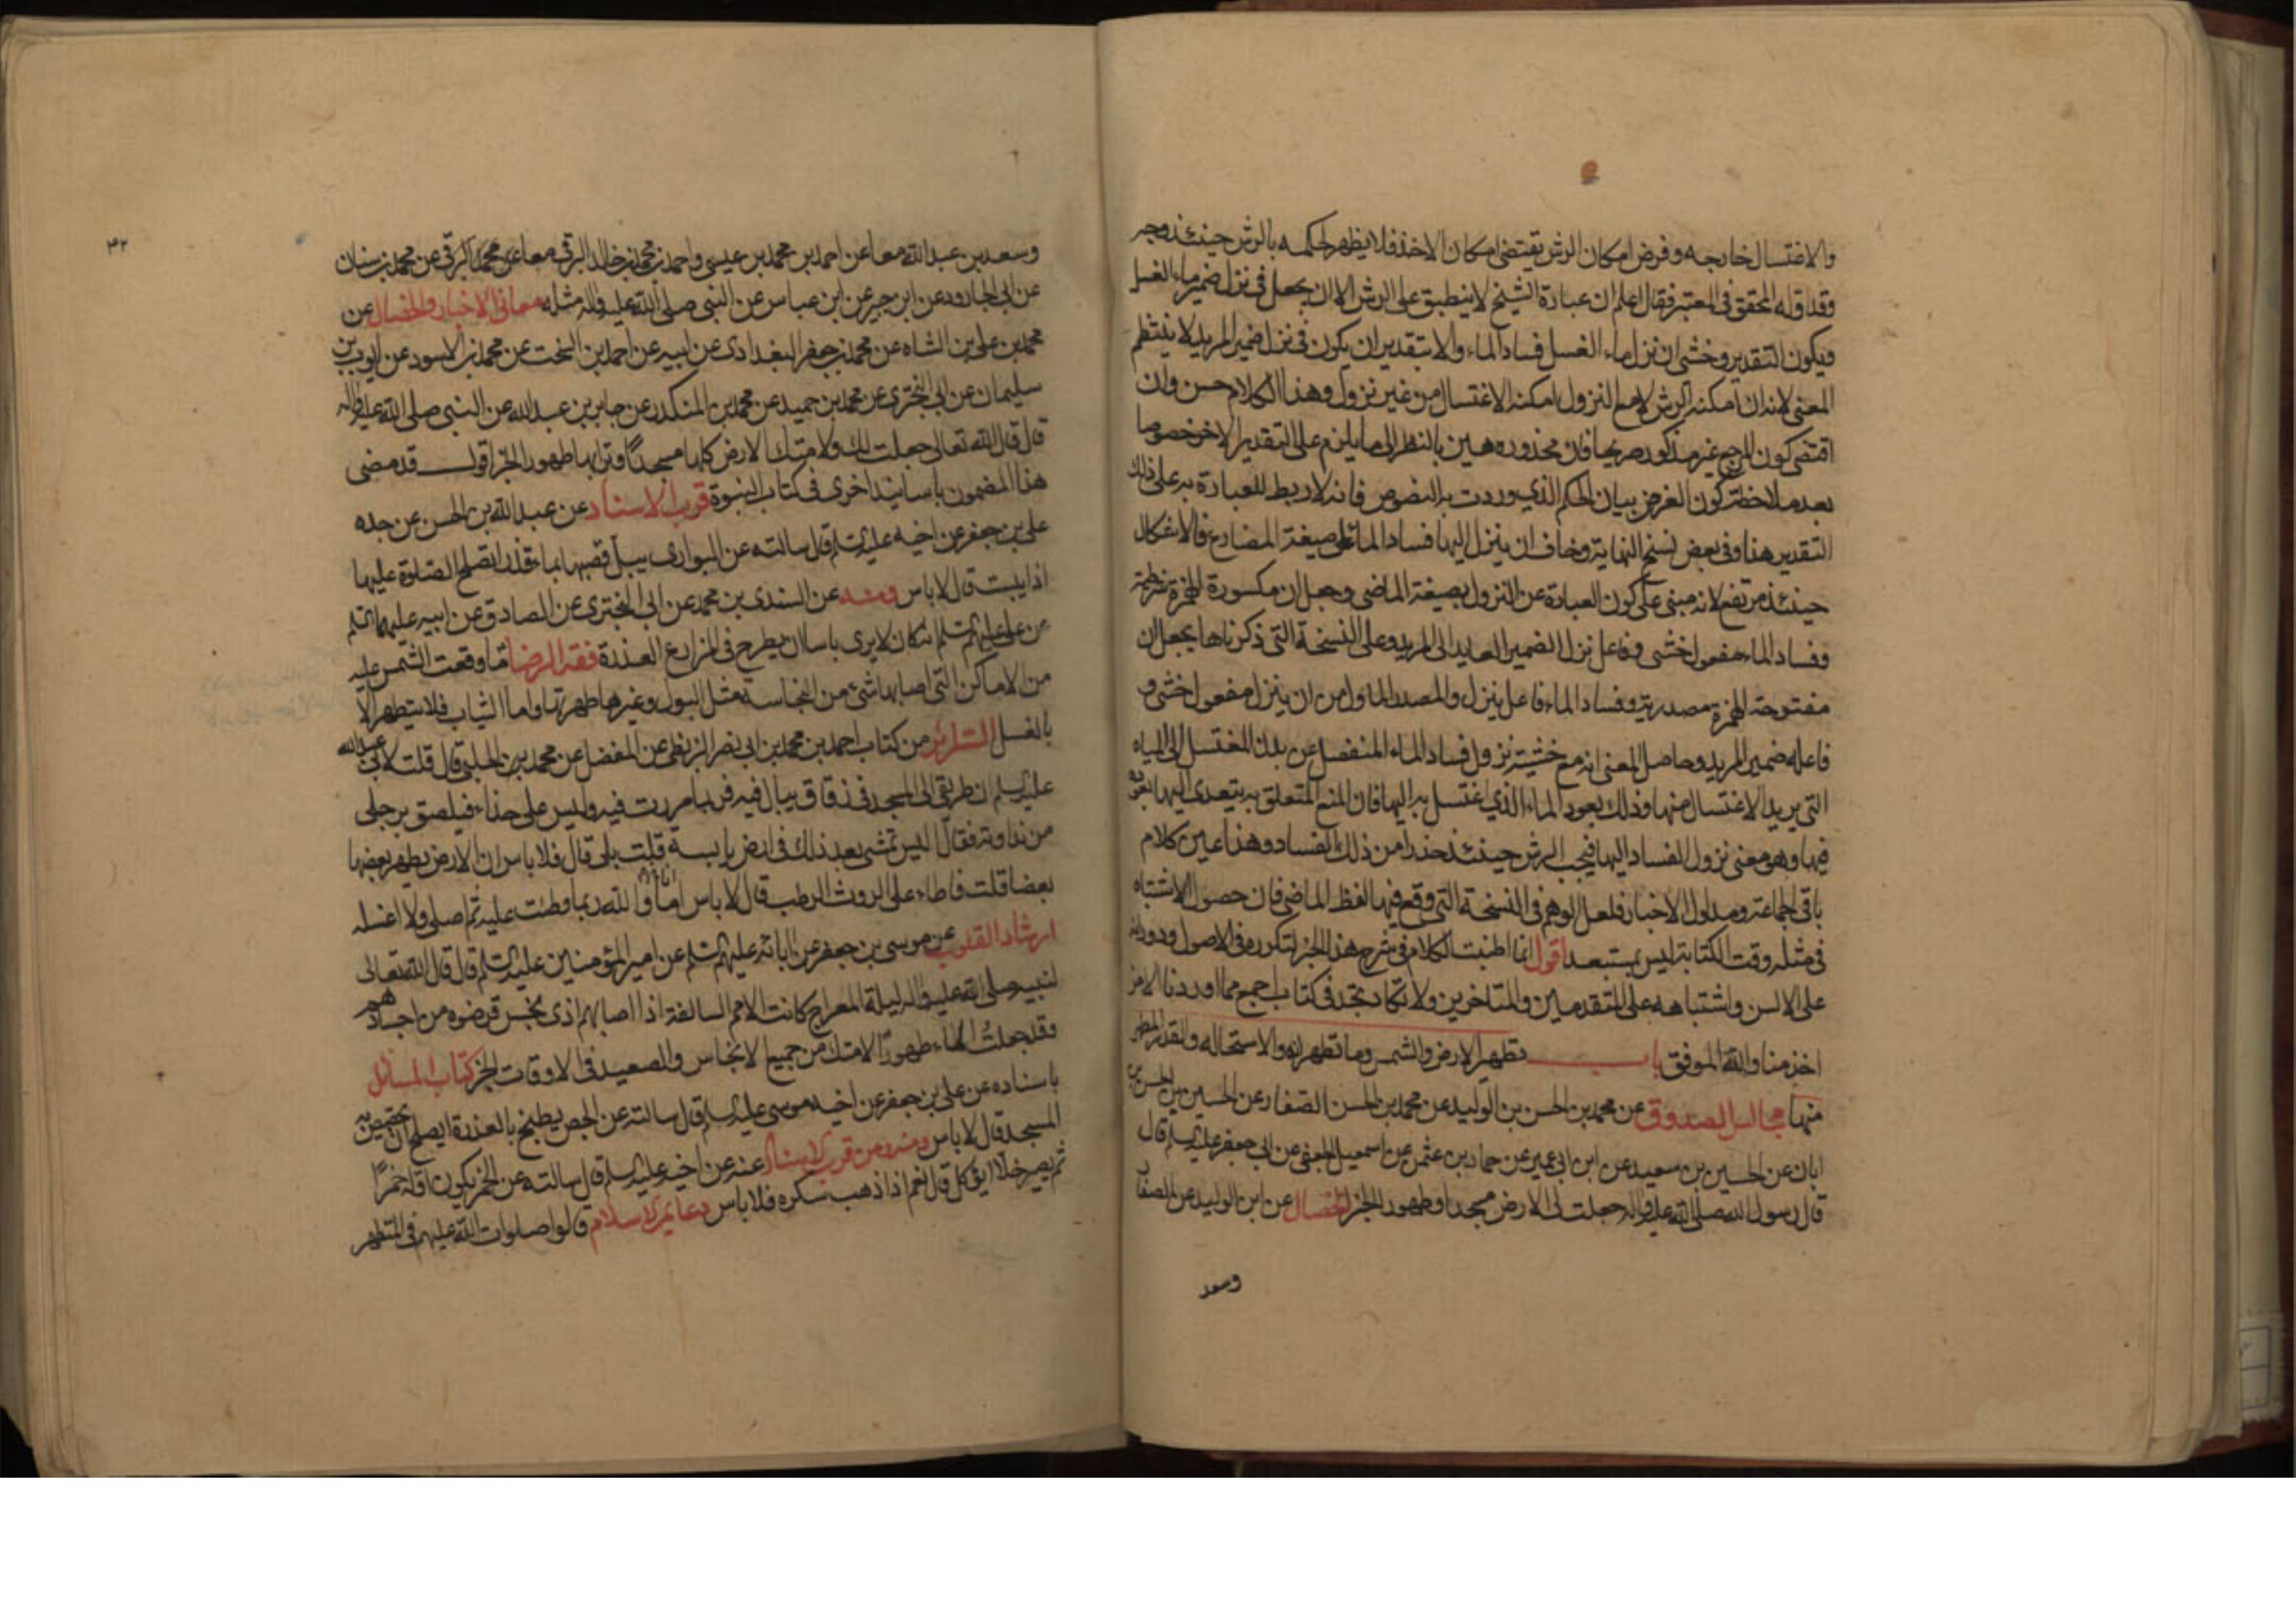 والاغتسال خارجه وفرض امكان الرش يقتضى امكان الاخذ فلا يظهر لحكمه بالرش حينئذ وجه
وقد اوله المحقق فى المعتبر فقال اعلم ان عبارة الشيخ لا ينطبق على الرش الا ان يجعل فى نزل ضمير ماء الغسل
ويكون التقدير وخشى ان نزل ماء الغسل فساد الماء والا بتقدير ان يكون فى نزل ضمير المريد لا ينتظم
المعنى لانه ان امكنه الرش لا مع النزول امكنه الاغتسال من غير نزول وهذا الكلام حسن وان
اقتضى كون المرجع غير مذكور صريحا فان محذوره هين بالنظر الى ما يلزم على التقدير الاخر خصوصا
بعد ملاحظة كون الغرض بيان الحكم الذي وردت به النصوص فانه لا ربط للعبارة به على ذلك
التقدير هنا وفى بعض نسخ النهاية وخاف ان ينزل اليها فساد الماء على صيغة المضارع فالاشكال
حينئذ مرتفع لانه مبنى على كون العبارة عن النزول بصيغة الماضى وجعل ان مكسورة الهمزة شرطية
وفساد الماء مفعول خشى وفاعل نزل الضمير العايد الى المريد وعلى النسخة التى ذكرناها يجعل ان
مفتوحة الهمزة مصدرية وفساد الماء فاعل ينزل والمصدر الماول من ان ينزل مفعول خشى و
فاعله ضمير المريد وحاصل المعنى انه مع خشيته نزول فساد الماء المنفصل عن بدن المغتسل الى المياه
التى يريد الاغتسال منها وذلك بعود الماء الذي اغتسل به اليها فان المنع المتعلق به يتعدى اليها بعوده
فيها وهو معنى نزول الفساد اليها فيجب الرش حينئذ حذرا من ذلك الفساد وهذا عين كلام
باقى الجماعة ومدلول الاخبار فلعل الوهم فى النسخة التى وقع فيها لفظ الماضى فان حصول الاشتباه
فى مثله وقت الكتابة ليس بمستبعد اقول انما اطنبت الكلام فى شرح هذا الخبر لتكرره فى الاصول ودورانه
على الالسن واشتباهه على المتقدمين والمتاخرين ولا تكاد تجد فى كتاب اجمع مما اوردنا الا من
اخذ منا والله الموفق باب تطهير الارض والشمس وما تطهرانه والاستحالة والقدر المطهر
منها مجالس الصدوق عن محمد بن الحسن بن الوليد عن محمد بن الحسن الصفار عن الحسين بن الحسن بن
ابان عن الحسين بن سعيد عن ابن ابى عمير عن حماد بن عثمن عن اسمعيل الجعفى عن ابى جعفر عليه السلم قال
قال رسول الله صلى الله عليه واله جعلت لى الارض مسجدا وطهورا الخبر الخصال عن ابن الوليد عن الصفار
وسعد
۴۲
وسعد بن عبد الله معا عن احمد بن محمد بن عيسى واحمد بن محمد بن خالد البرقى معا عن محمد البرقى عن محمد بن سنان
عن ابى الجارود عن ابن جبير عن ابن عباس عن النبى صلى الله عليه واله مثله معانى الاخبار والخصال عن
محمد بن على بن الشاه عن محمد بن جعفر البغدادى عن ابيه عن احمد بن السخت عن محمد بن الاسود عن ايوب بن
سليمان عن ابى البخترى عن محمد بن حميد عن محمد بن المنكدر عن جابر بن عبد الله عن النبى صلى الله عليه واله
قال قال الله تعالى جعلت لك ولامتك الارض كلها مسجدا وترابها طهورا الخبر اقول قد مضى
هذا المضمون باسانيد اخرى فى كتاب النبوة قرب الاسناد عن عبد الله بن الحسن عن جده
على بن جعفر عن اخيه عليه السلم قال سالته عن البوارى يبل قصبها بماء قذر ايصلح الصلوة عليها
اذا يبست قال لا باس ومنه عن السندى بن محمد عن ابى البخترى عن الصادق عن ابيه عليهما السلم
عن على عليهم السلم انه كان لا يرى باسا ان يطرح فى المزارع العذرة فقه الرضا ما وقعت الشمس عليه
من الاماكن التى اصابها شئ من النجاسة مثل البول وغيرها طهرتها واما الثياب فلا يتطهر الا
بالغسل السرائر من كتاب احمد بن محمد بن ابى نصر البزنطى عن المفضل عن محمد بن الحلبى قال قلت لابى عبد الله
عليه السلم ان طريقى الى المسجد فى زقاق يبال فيه فربما مررت فيه وليس على حذاء فيلصق برجلى
من نداوته فقال اليس تمشى بعد ذلك فى ارض يابسة قلت بلى قال فلا باس ان الارض يطهر بعضها
بعضا قلت فاطاء على الروث الرطب قال لا باس اما انا والله ربما وطئت عليه ثم اصلى ولا اغسله
ارشاد القلوب عن موسى بن جعفر عن ابائه عليهم السلم عن امير المؤمنين عليه السلم قال قال الله تعالى
لنبيه صلى الله عليه واله ليلة المعراج كانت الامم السالفة اذا اصابهم اذى نجس قرضوه من اجسادهم
وقد جعلت الماء طهورا لامتك من جميع الانجاس والصعيد فى الاوقات الخبر كتاب المسائل
باسناده عن على بن جعفر عن اخيه موسى عليه السلم قال سالته عن الجص يطبخ بالعذرة ايصلح ان يجصص به
المسجد قال لا باس ومنه ومن قرب الاسناد عنه عن اخيه عليه السلم قال سالته عن الخمر يكون اوله خمرا
ثم يصير خلا ايؤكل قال نعم اذا ذهب سكره فلا باس دعائم الاسلام قالوا صلوات الله عليهم فى المتطهر